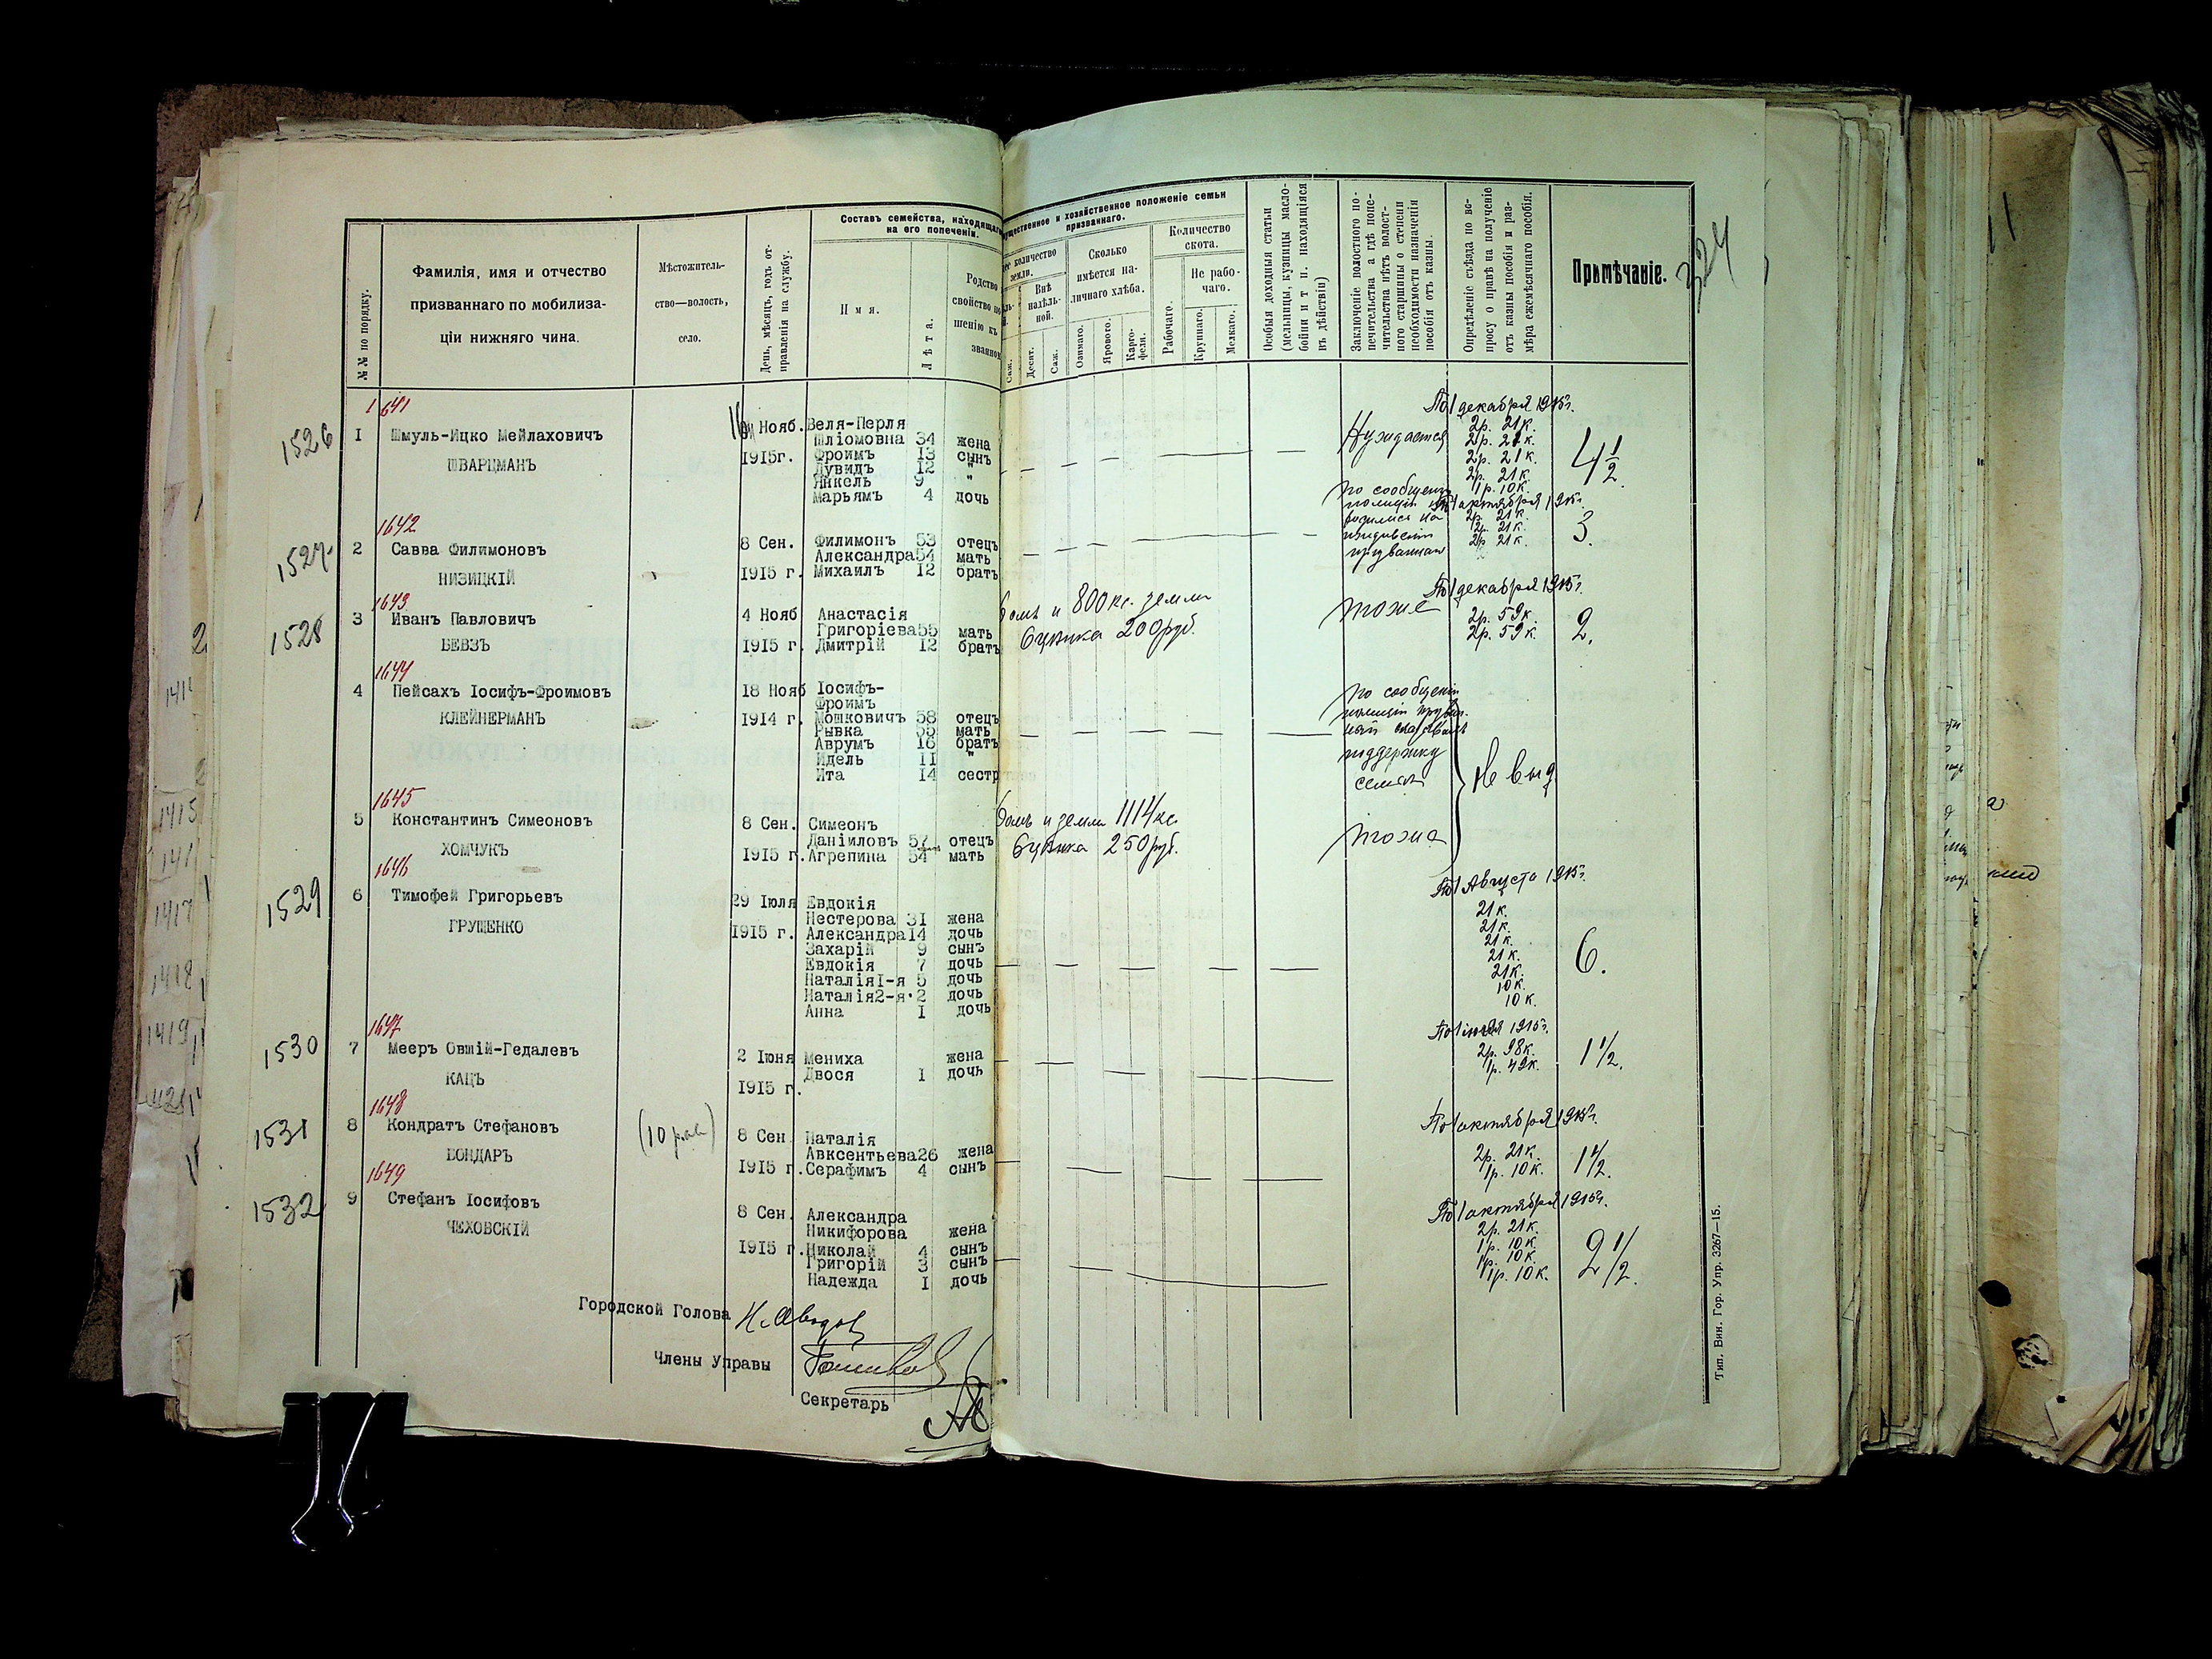 324
№№ по порядку.
Фамилія, имя и отчество
призваннаго по мобилиза-
ціи нижняго чина.
Мѣстожитель-
ство—волость,
село.
День, мѣсяцъ, годъ от-
правленія на службу.
Составъ семейства, находящаго
на его попеченіи.
Имя.
Лѣта.
Родство
свойство по
шенію къ
званном
ущественное и хозяйственное положеніе семьи
призваннаго.
ее количество
земли.
Саж.
Внѣ
надѣль-
ной.
Десят.
Саж.
Сколько
имѣется на-
личнаго хлѣба.
Озимаго.
Ярового.
Карто-
фели.
Количество
скота.
Рабочаго.
Не рабо-
чаго.
Крупнаго.
Мелкаго.
Особыя доходныя статьи
(мельницы, кузницы масло-
бойни и т п. находящіяся
въ дѣйствіи)
Заключеніе волостного по-
печительства а гдѣ попе-
чительства нѣтъ волост-
ного старшины о степени
необходимости назначенія
пособія отъ казны.
Опредѣленіе съѣзда по во-
просу о правѣ на полученіе
отъ казны пособія и раз-
мѣра ежемѣсячнаго пособія.
Примѣчаніе.
1641
1526
I Шмуль-Ицко Мейлаховичъ
ШВАРЦМАНЪ
16 Нояб.
1915г.
Веля-Перля
Шліомовна 34 жена
Фроимъ 13 сынъ
Дувидъ 12 "
Янкель 9 "
Марьямъ 4 дочь
Нуждается
По 1 декабря 1915г.
2р. 21к.
2р. 21к.
2р. 21к.
2р. 21к.
1р. 10к.
4 1/2
1642
1527
2 Савва Филимоновъ
НИЗИЦКІЙ
8 Сен.
1915 г.
Филимонъ 53 отецъ
Александра 54 мать
Михаилъ 12 братъ
по сообщен
полиціи
на
иждивеніи
призваннаго
По 1 октября 1915г.
2р. 21к.
2р. 21к.
2р. 21к.
3.
1643
1528
3 Иванъ Павловичъ
БЕВЗЪ
4 Нояб
1915 г.
Анастасія
Григоріева 55 мать
Дмитрій 12 братъ
домъ и 800 кс. земли
оцѣнка 200 руб.
тоже
По 1 декабря 1915г.
2р. 59к.
2р. 59к.
2.
1644
4 Пейсахъ Іосифъ-Фроимовъ
КЛЕЙНЕРМАНЪ
18 Нояб
1914 г.
Іосифъ-
Фроимъ
Мошковичъ 58 отецъ
Рывка 55 мать
Аврумъ 16 братъ
Идель 11 "
Ита 14 сестр
по сообщенію
полиціи
поддержку
семьи
Не выд
1645
5 Константинъ Симеоновъ
ХОМЧУКЪ
8 Сен.
1915 г.
Симеонъ
Даніиловъ 57 отецъ
Агрепина 54 мать
домъ и земли 1114 кс.
оцѣнка 250 руб.
тоже
1646
1529
6 Тимофей Григорьевъ
ГРУЩЕНКО
29 Іюля
1915 г.
Евдокія
Нестерова 31 жена
Александра 14 дочь
Захарій 9 сынъ
Евдокія 7 дочь
Наталія I-я 5 дочь
Наталія 2-я 2 дочь
Анна I дочь
По 1 Августа 1915г.
21к.
21к.
21к.
21к.
21к.
10к.
10к.
6.
1647
1530
7 Мееръ Овшій-Гедалевъ
КАЦЪ
2 Іюня
1915 г.
Мениха жена
Двося I дочь
1915г.
2р. 98к.
1р. 49к.
1 1/2.
1648
1531
8 Кондратъ Стефановъ
БОНДАРЪ
8 Сен.
1915 г.
Наталія
Авксентьева 26 жена
Серафимъ 4 сынъ
По 1 октября 1915г.
2р. 21к.
1р. 10к.
1 1/2.
1649
1532
9 Стефанъ Іосифовъ
ЧЕХОВСКІЙ
8 Сен.
1915 г.
Александра
Никифорова жена
Николай 4 сынъ
Григорій 3 сынъ
Надежда I дочь
По 1 октября 1915г.
2р. 21к.
1р. 10к.
1р. 10к.
1р. 10к.
2 1/2.
Городской Голова
Члены Управы
Секретарь
Тип. Вин. Гор. Упр. 3267—15.